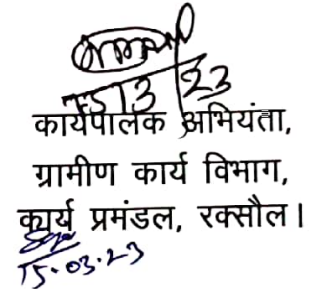 15/3/23
कार्यपालक अभियंता,
ग्रामीण कार्य विभाग,
कार्य प्रमंडल, रक्सौल।
15.03.23